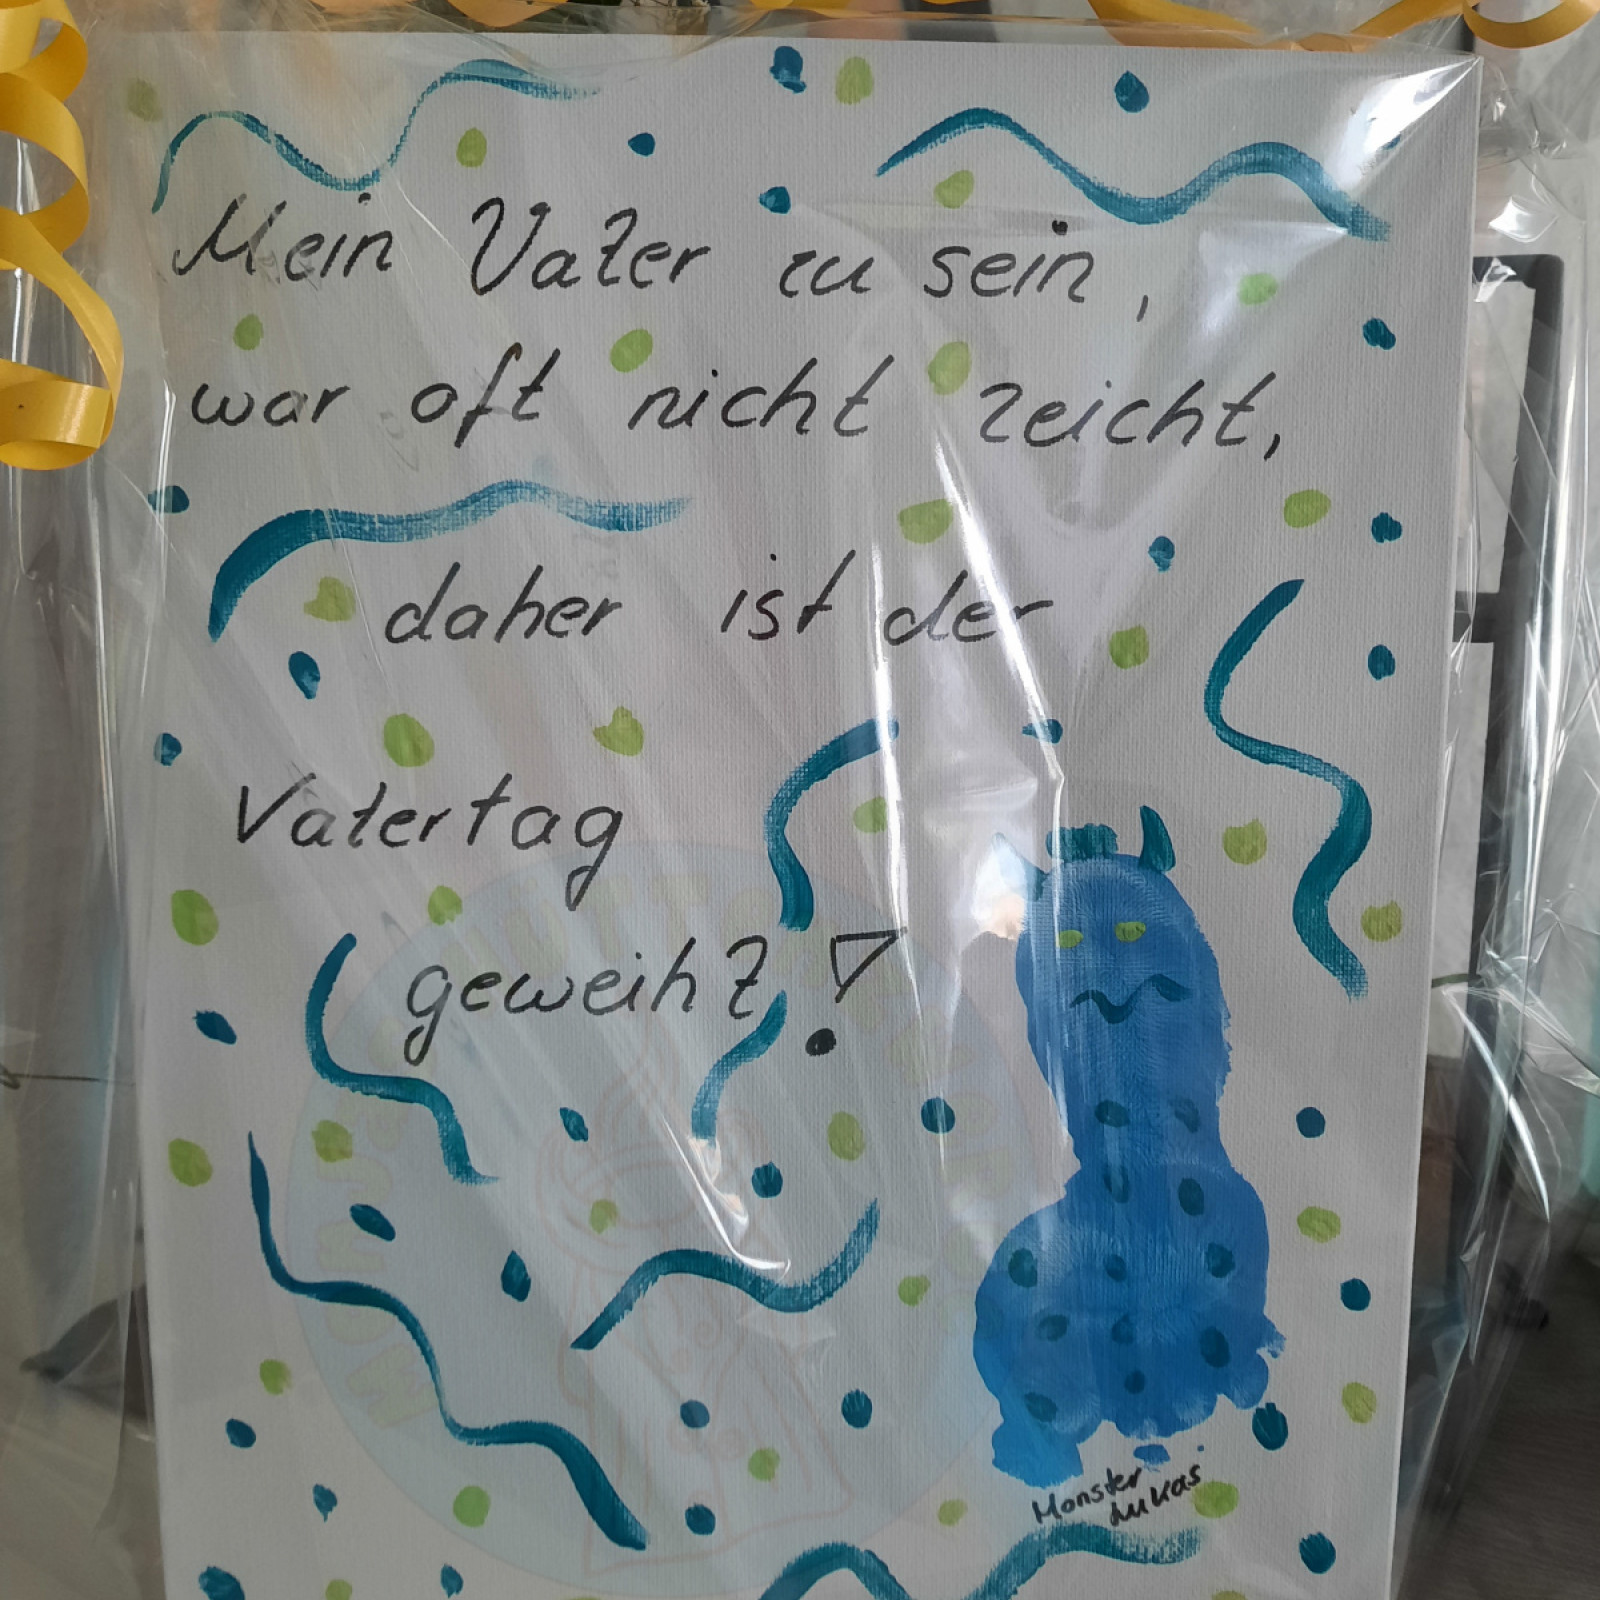 Mein Vater zu sein,
war oft nicht leicht,
daher ist der
Vatertag
geweiht!
Monster
Lukas